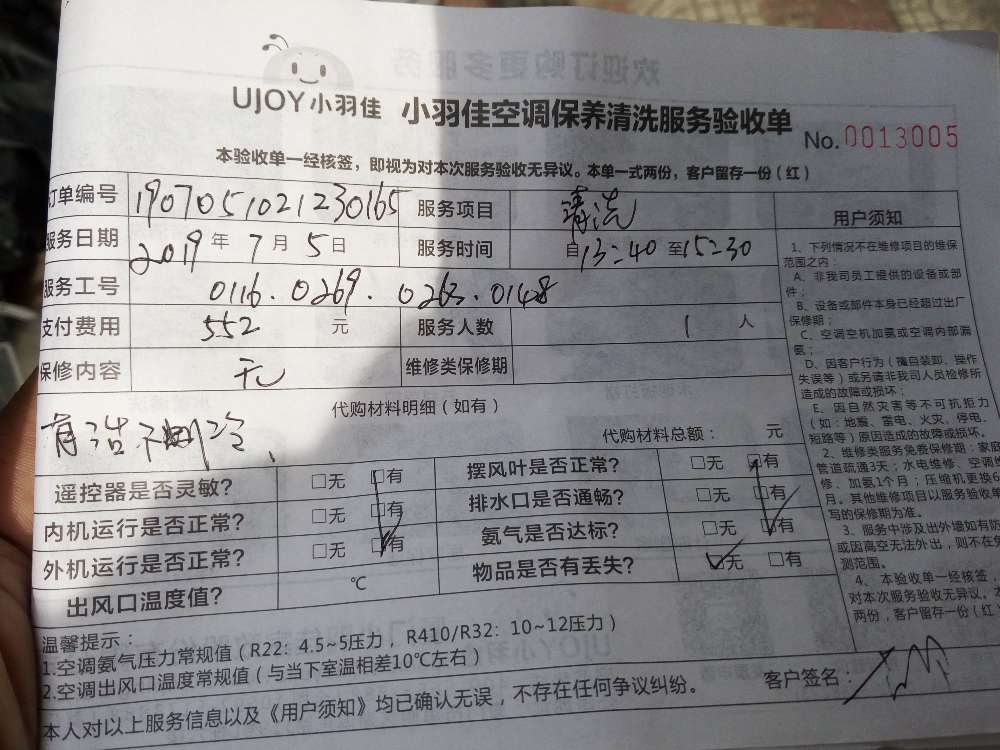 UJOY小羽佳 小羽佳空调保养清洗服务验收单
No.0013005
本验收单一经核签，即视为对本次服务验收无异议。本单一式两份，客户留存一份（红）
订单编号 1907051021230165 服务项目 清洗
服务日期 2019年7月5日 服务时间 自13:40至15:30
服务工号 0116.0269.0263.0148
支付费用 552元 服务人数 1人
保修内容 无 维修类保修期
代购材料明细（如有）
代购材料总额： 元
遥控器是否灵敏？ □无 □有 摆风叶是否正常？ □无 □有
内机运行是否正常？ □无 □有 排水口是否通畅？ □无 □有
外机运行是否正常？ □无 □有 氨气是否达标？ □无 □有
出风口温度值？ ℃ 物品是否有丢失？ ☑无 □有
温馨提示：
1.空调氨气压力常规值（R22：4.5~5压力，R410/R32：10~12压力）
2.空调出风口温度常规值（与当下室温相差10℃左右）
本人对以上服务信息以及《用户须知》均已确认无误，不存在任何争议纠纷。
客户签名：
用户须知
1、下列情况不在维修项目的维保
范围之内：
A、非我司员工提供的设备或部
件；
B、设备或部件本身已经超过出厂
保修期；
C、空调空机加氨或空调内部漏
氨；
D、因客户行为（擅自装卸、操作
失误等）或另请非我司人员检修所
造成的故障或损坏；
E、因自然灾害等不可抗拒力
（如：地震、雷电、火灾、停电、
短路等）原因造成的故障或损坏。
2、维修类服务免费保修期：家庭
管道疏通3天；水电维修、空调维
修、加氨1个月；压缩机更换6
月。其他维修项目以服务验收单
写的保修期为准。
3、服务中涉及出外墙如有防
或因高空无法外出，则不在
测范围。
4、本验收单一经核签，
对本次服务验收无异议。本
两份，客户留存一份（红